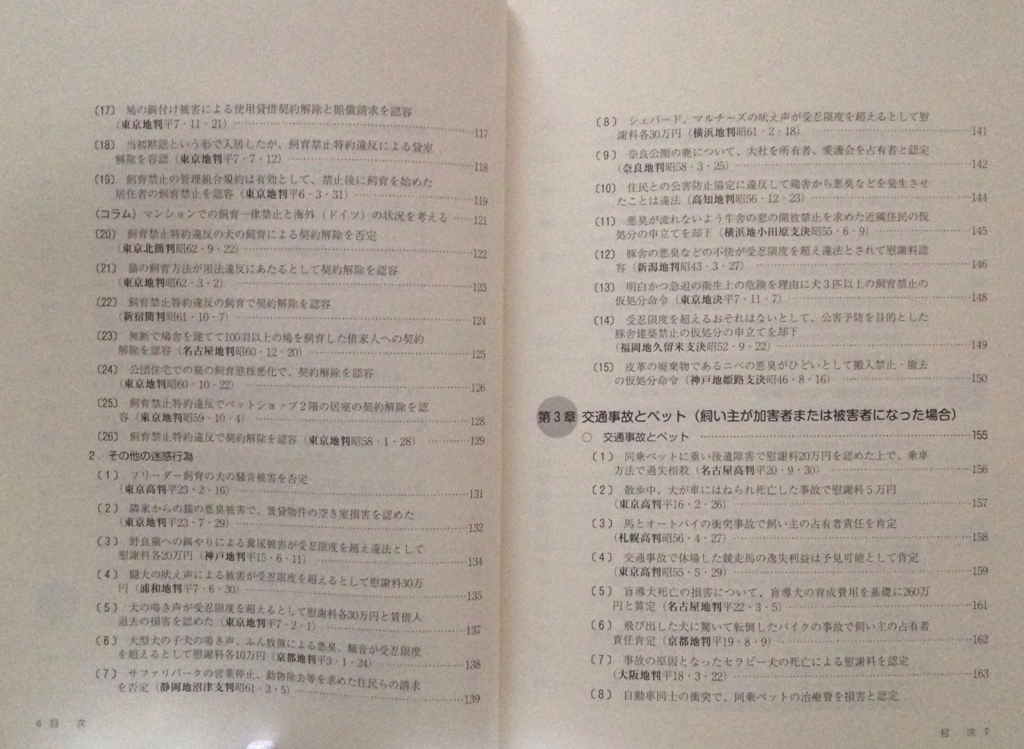 〔17〕 鳩の餌付け被害による使用貸借契約解除と賠償請求を認容
（東京地判平7・11・21）……117
〔18〕 当初黙認という形で入居したが、飼育禁止特約違反による貸室
解除を容認（東京地判平7・7・12）……118
〔19〕 飼育禁止の管理組合規約は有効として、禁止後に飼育を始めた
居住者の飼育禁止を認容（東京地判平6・3・31）……119
（コラム）マンションでの飼育一律禁止と海外（ドイツ）の状況を考える……121
〔20〕 飼育禁止特約違反の犬の飼育による契約解除を否定
（東京北簡判昭62・9・22）……122
〔21〕 猫の飼育方法が用法違反にあたるとして契約解除を認容
（東京地判昭62・3・2）……123
〔22〕 飼育禁止特約違反の飼育で契約解除を認容
（新宿簡判昭61・10・7）……124
〔23〕 無断で鳩舎を建てて100羽以上の鳩を飼育した借家人への契約
解除を認容（名古屋地判昭60・12・20）……125
〔24〕 公団住宅での猫の飼育態様悪化で、契約解除を認容
（東京地判昭60・10・22）……126
〔25〕 飼育禁止特約違反でペットショップ2階の居室の契約解除を認
容（東京地判昭59・10・4）……128
〔26〕 飼育禁止特約違反で契約解除を認容（東京地判昭58・1・28）……129
2．その他の迷惑行為
〔1〕 ブリーダー飼育の犬の騒音被害を否定
（東京高判平23・2・16）……131
〔2〕 隣家からの猫の悪臭被害で、賃貸物件の空き室損害を認めた
（東京地判平23・7・29）……132
〔3〕 野良猫への餌やりによる糞尿被害が受忍限度を超え違法として
慰謝料各20万円（神戸地判平15・6・11）……134
〔4〕 闘犬の吠え声による被害が受忍限度を超えるとして慰謝料30万
円（浦和地判平7・6・30）……135
〔5〕 犬の鳴き声が受忍限度を超えるとして慰謝料各30万円と賃借人
退去の損害を認めた（東京地判平7・2・1）……137
〔6〕 大型犬の子犬の鳴き声、ふん放置による悪臭、騒音が受忍限度
を超えるとして慰謝料各10万円（京都地判平3・1・24）……138
〔7〕 サファリパークの営業停止、動物除去等を求めた住民らの請求
を否定（静岡地沼津支判昭61・3・5）……139
6 目 次
〔8〕 シェパード、マルチーズの吠え声が受忍限度を超えるとして慰
謝料各30万円（横浜地判昭61・2・18）……141
〔9〕 奈良公園の鹿について、大社を所有者、愛護会を占有者と認定
（奈良地判昭58・3・25）……142
〔10〕 住民との公害防止協定に違反して鶏舎から悪臭などを発生させ
たことは違法（高知地判昭56・12・23）……144
〔11〕 悪臭が流れないよう牛舎の窓の開放禁止を求めた近隣住民の仮
処分の申立てを却下（横浜地小田原支決昭55・6・9）……145
〔12〕 豚舎の悪臭などの不快が受忍限度を超え違法とされて慰謝料認
容（新潟地判昭43・3・27）……146
〔13〕 明白かつ急迫の衛生上の危険を理由に犬3匹以上の飼育禁止の
仮処分命令（東京地決平7・11・7）……148
〔14〕 受忍限度を超えるおそれはないとして、公害予防を目的とした
豚舎建築禁止の仮処分の申立てを却下
（福岡地久留米支決昭52・9・22）……149
〔15〕 皮革の廃棄物であるニベの悪臭がひどいとして搬入禁止・撤去
の仮処分命令（神戸地姫路支決昭46・8・16）……150
第3章 交通事故とペット（飼い主が加害者または被害者になった場合）
○ 交通事故とペット……155
〔1〕 同乗ペットに重い後遺障害で慰謝料20万円を認めた上で、乗車
方法で過失相殺（名古屋高判平20・9・30）……156
〔2〕 散歩中、犬が車にはねられ死亡した事故で慰謝料5万円
（東京高判平16・2・26）……157
〔3〕 馬とオートバイの衝突事故で飼い主の占有者責任を肯定
（札幌高判昭56・4・27）……158
〔4〕 交通事故で休場した競走馬の逸失利益は予見可能として肯定
（東京高判昭55・5・29）……159
〔5〕 盲導犬死亡の損害について、盲導犬の育成費用を基礎に260万
円と算定（名古屋地判平22・3・5）……161
〔6〕 飛び出した犬に驚いて転倒したバイクの事故で飼い主の占有者
責任肯定（京都地判平19・8・9）……162
〔7〕 事故の原因となったセラピー犬の死亡による慰謝料を認定
（大阪地判平18・3・22）……163
〔8〕 自動車同士の衝突で、同乗ペットの治療費を損害と認定
目 次 7